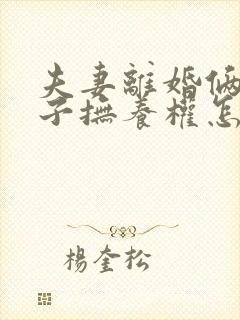 夫妻離婚倆
子撫養權怎
楊奎松